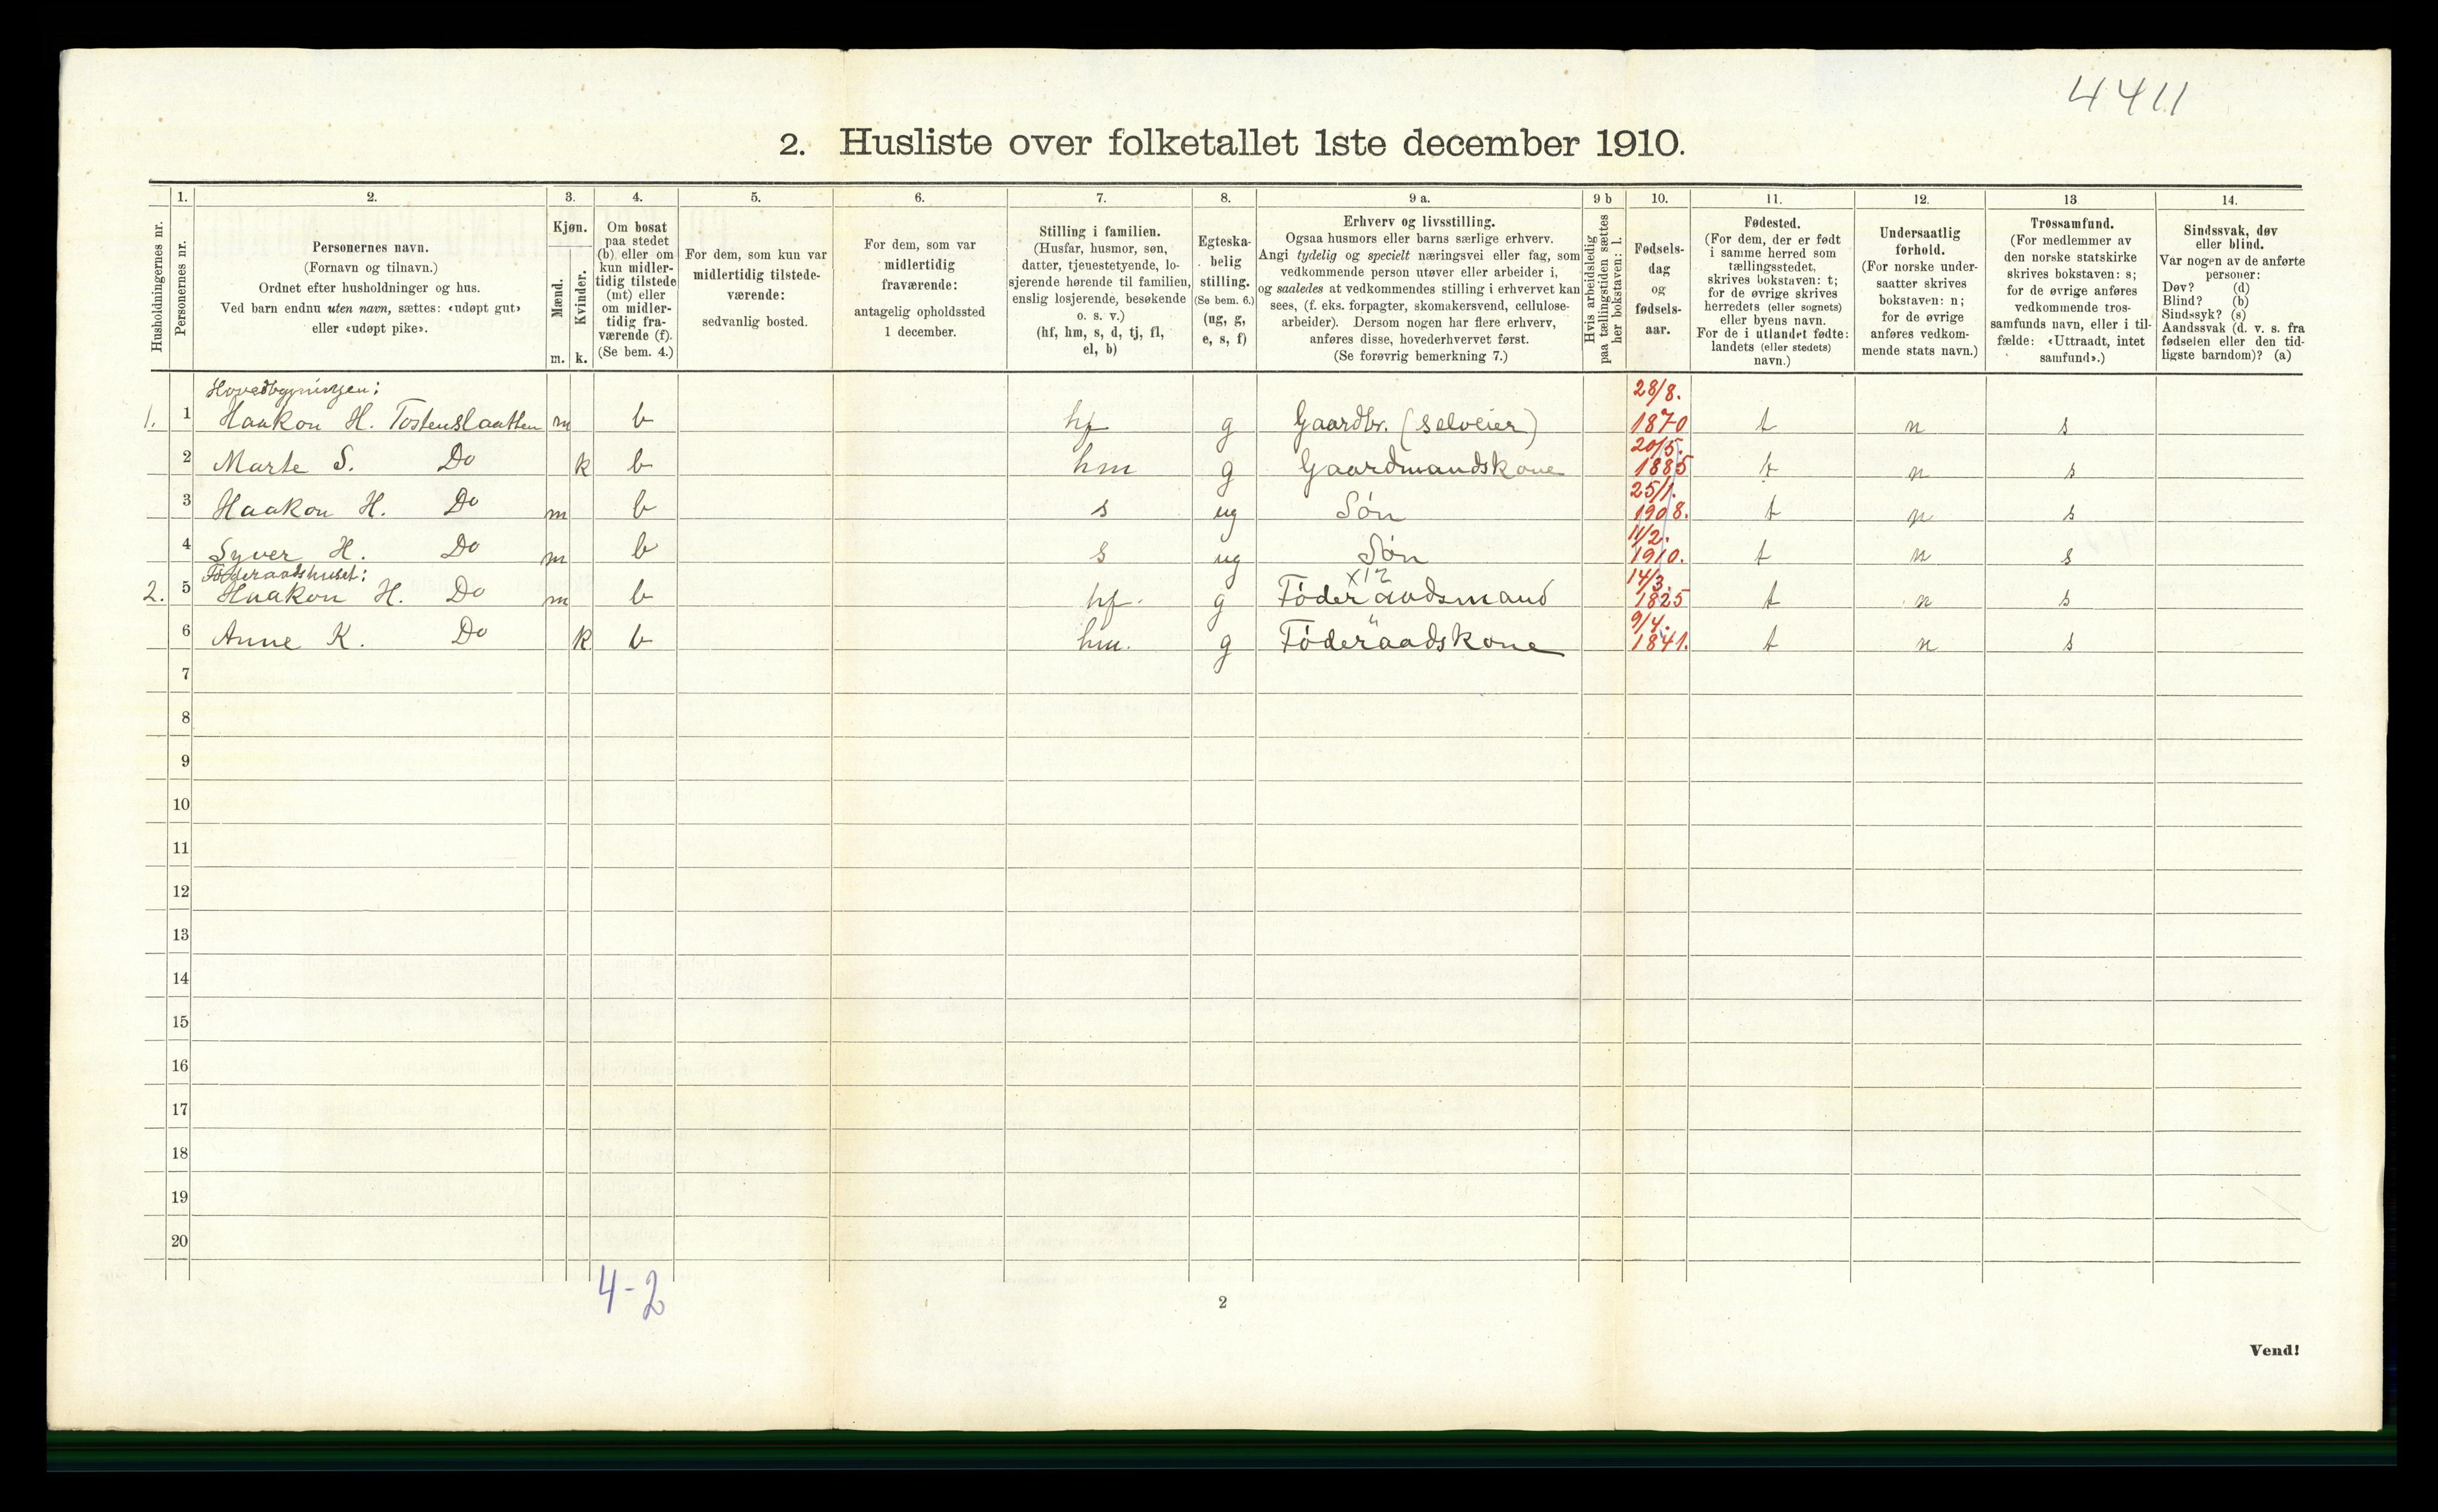 4411
2. Husliste over folketallet 1ste december 1910.
Husholdningernes nr.
1.
Personernes nr.
2.
Personernes navn.
(Fornavn og tilnavn.)
Ordnet efter husholdninger og hus.
Ved barn endnu uten navn, sættes: «udøpt gut»
eller «udøpt pike».
3.
Kjøn.
Mænd.
Kvinder.
m. k.
4.
Om bosat
paa stedet
(b) eller om
kun midler-
tidig tilstede
(mt) eller
om midler-
tidig fra-
værende (f).
(Se bem. 4.)
5.
For dem, som kun var
midlertidig tilstede-
værende:
sedvanlig bosted.
6.
For dem, som var
midlertidig
fraværende:
antagelig opholdssted
1 december.
7.
Stilling i familien.
(Husfar, husmor, søn,
datter, tjenestetyende, lo-
sjerende hørende til familien,
enslig losjerende, besøkende
o. s. v.)
(hf, hm, s, d, tj, fl,
el, b)
8.
Egteska-
belig
stilling.
(Se bem. 6.)
(ug, g,
e, s, f)
9 a.
Erhverv og livsstilling.
Ogsaa husmors eller barns særlige erhverv.
Angi tydelig og specielt næringsvei eller fag, som
vedkommende person utøver eller arbeider i,
og saaledes at vedkommendes stilling i erhvervet kan
sees, (f. eks. forpagter, skomakersvend, cellulose-
arbeider). Dersom nogen har flere erhverv,
anføres disse, hovederhvervet først.
(Se forøvrig bemerkning 7.)
9 b
Hvis arbeidsledig
paa tællingstiden sættes
her bokstaven: l.
10.
Fødsels-
dag
og
fødsels-
aar.
11.
Fødested.
(For dem, der er født
i samme herred som
tællingsstedet,
skrives bokstaven: t;
for de øvrige skrives
herredets (eller sognets)
eller byens navn.
For de i utlandet fødte:
landets (eller stedets)
navn.)
12.
Undersaatlig
forhold.
(For norske under-
saatter skrives
bokstaven: n;
for de øvrige
anføres vedkom-
mende stats navn.)
13
Trossamfund.
(For medlemmer av
den norske statskirke
skrives bokstaven: s;
for de øvrige anføres
vedkommende tros-
samfunds navn, eller i til-
fælde: «Uttraadt, intet
samfund».)
14.
Sindssvak, døv
eller blind.
Var nogen av de anførte
personer:
Døv? (d)
Blind? (b)
Sindssyk? (s)
Aandssvak (d. v. s. fra
fødselen eller den tid-
ligste barndom)? (a)
Hovedbygningen:
28/8.
1. 1 Haakon H. Tostenslaatten m b hf g Gaardbr. (selveier) 1870 t n s
20/5.
2 Marte S. Do k b hm g Gaardmandskone 1885 t n s
25/1.
3 Haakon H. Do m b s ug Søn 1908. t n s
11/2.
4 Syver H. Do m b s ug Søn 1910. t n s
Føderaadshuset: X12 14/3.
2. 5 Haakon H. Do m b hf. g Føderaadsmand 1825 t n s
" 9/4.
6 Anne K. Do k b hm. g Føderaadskone 1841. t n s
7
8
9
10
11
12
13
14
15
16
17
18
19
20
4-2
2
Vend!